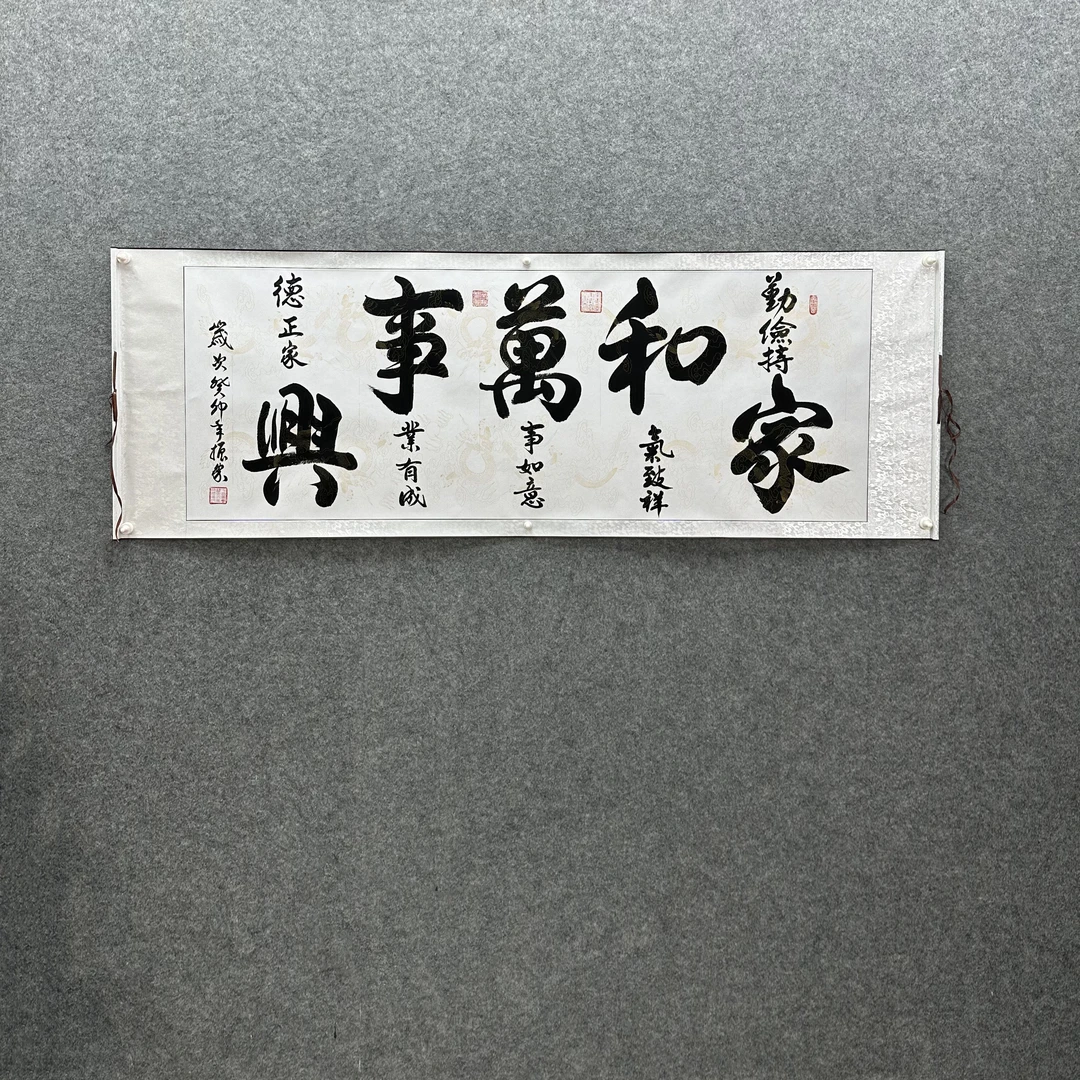 勤儉持家
和氣致祥
萬事如意
事業有成
德正家興
歲次癸卯年振家